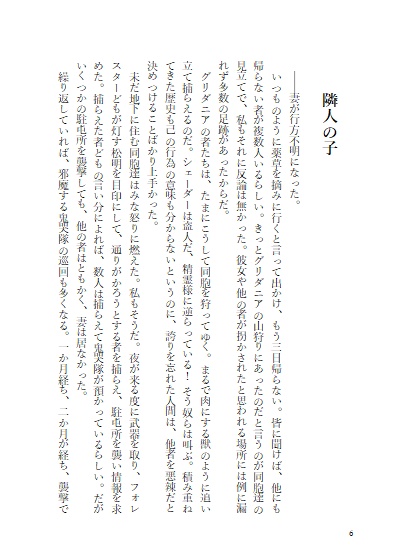 隣人の子
――妻が行方不明になった。
いつものように薬草を摘みに行くと言って出かけ、もう三日帰らない。皆に聞けば、他にも
帰らない者が複数人いるらしい。きっとグリダニアの山狩りにあったのだと言うのが同胞達の
見立てで、私もそれに反論は無かった。彼女や他の者が拐かされたと思われる場所には例に漏
れず多数の足跡があったからだ。
グリダニアの者たちは、たまにこうして同胞を狩ってゆく。まるで肉にする獣のように追い
立て捕らえるのだ。シェーダーは盗人だ、精霊様に逆らっている！そう奴らは叫ぶ。積み重ね
てきた歴史も己の行為の意味も分からないというのに、誇りを忘れた人間は、他者を悪辣だと
決めつけることばかり上手かった。
未だ地下に住む同胞達はみな怒りに燃えた。私もそうだ。夜が来る度に武器を取り、フォレ
スターどもが灯す松明を目印にして、通りがかろうとする者を捕らえ、駐屯所を襲い情報を求
めた。捕らえた者どもの言い分によれば、数人は捕らえて鬼哭隊が預かっているらしい。だが
いくつかの駐屯所を襲撃しても、他の者はともかく、妻は居なかった。
繰り返していれば、邪魔する鬼哭隊の巡回も多くなる。一か月経ち、二か月が経ち、襲撃で
6